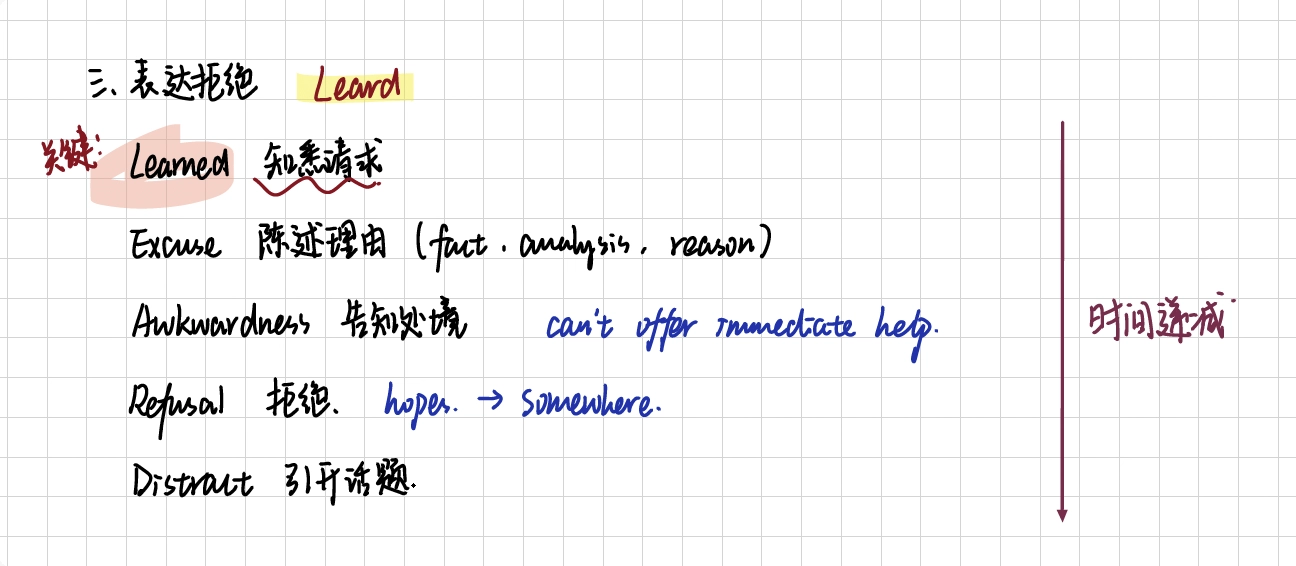 三、表达拒绝 Leard
关键: Learned 知悉请求
Excuse 陈述理由 (fact, analysis, reason)
Awkwardness 告知处境 can't offer immediate help.
时间递减
Refusal 拒绝、 hopes. → Somewhere.
Distract 引开话题.